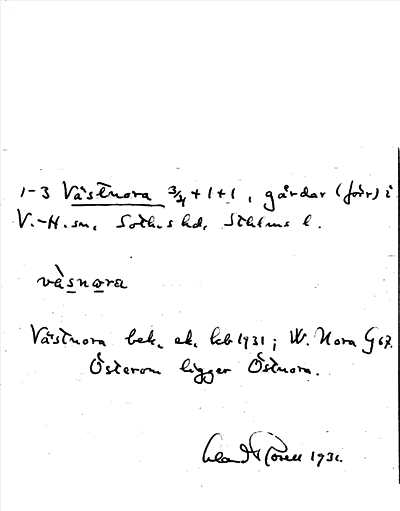 1-3 Västnora 3/4 + 1 + 1, gårdar (förr) i
V.-H. sn, Soth.s hd, Sthlms l.
väsnora
Västnora bek. ek. kb 1931; W. Nora G 67.
Österom ligger Östnora.
1931.